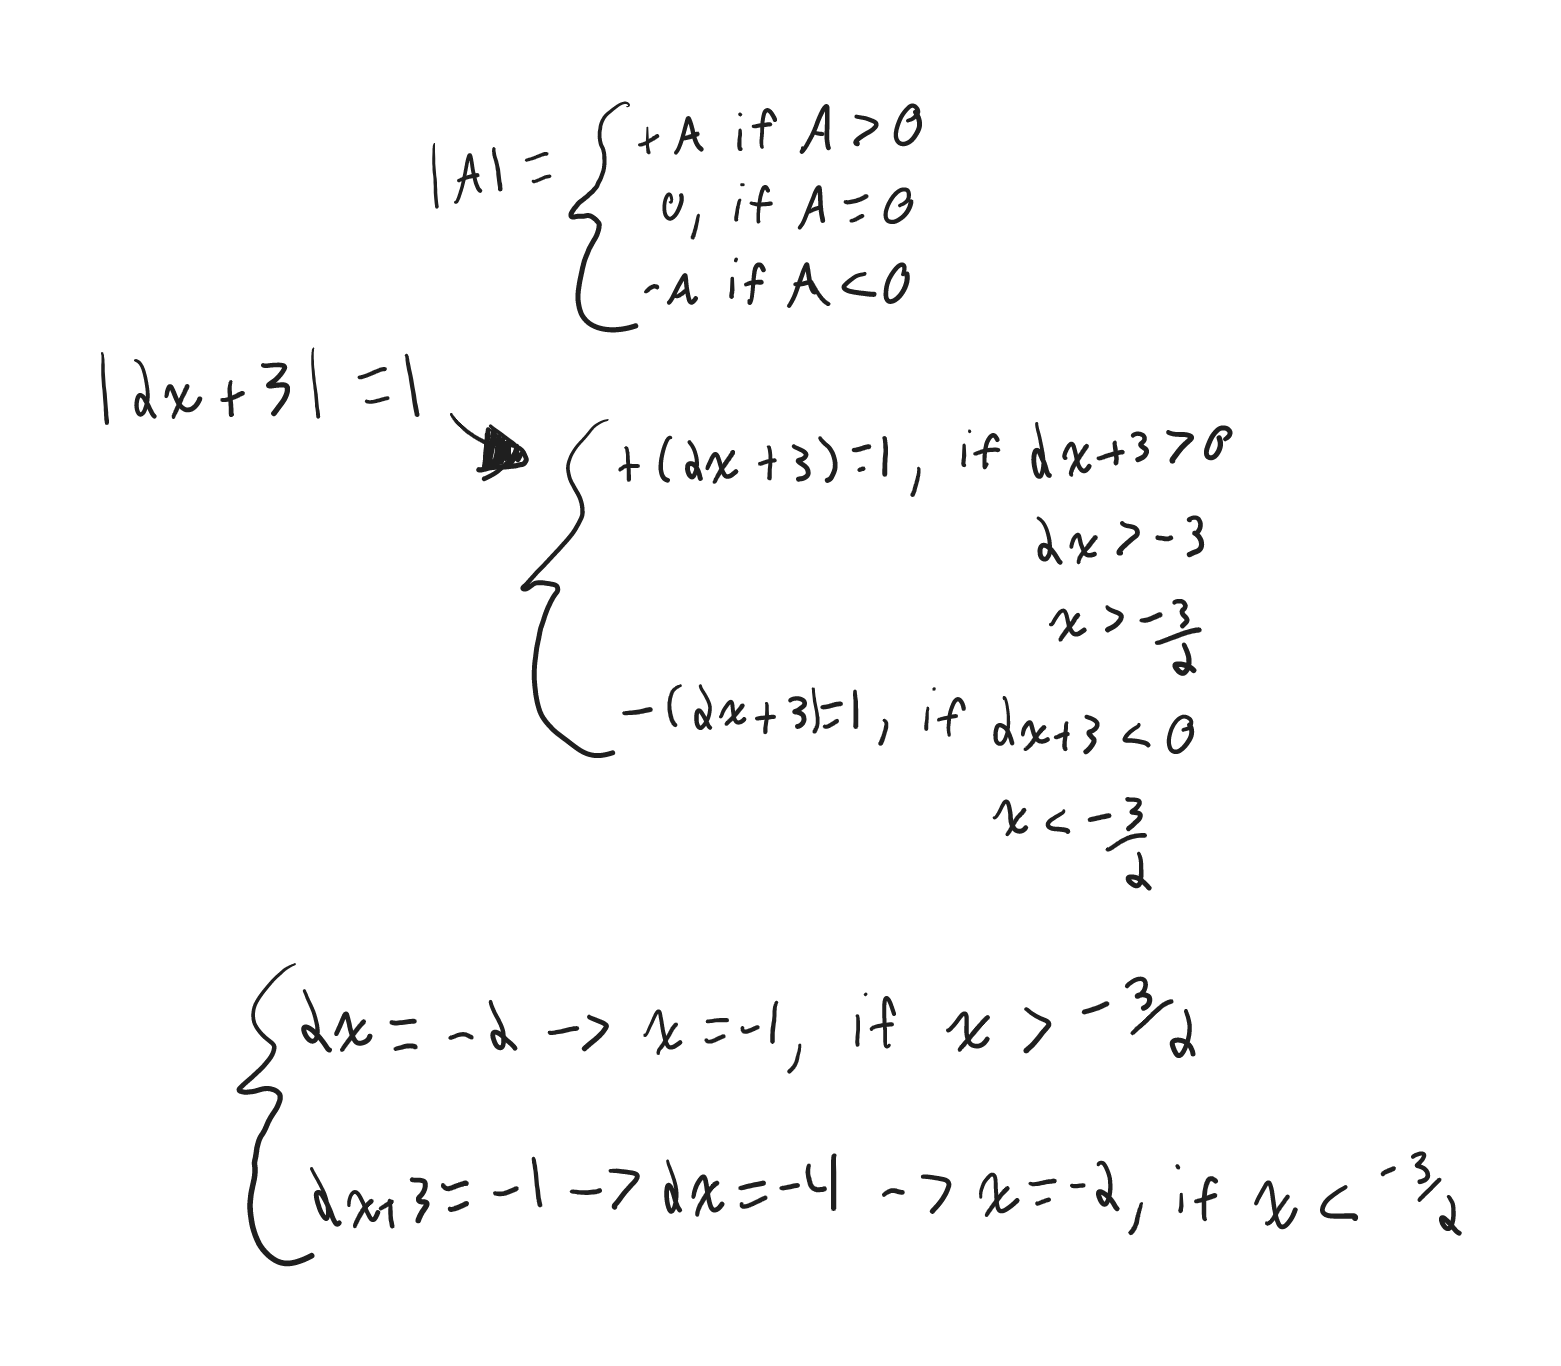 |A| = { +A if A > 0
0, if A = 0
-A if A < 0
|2x + 3| = 1
{ +(2x + 3) = 1, if 2x + 3 > 0
2x > -3
x > -3/2
-(2x + 3) = 1, if 2x + 3 < 0
x < -3/2
{ 2x = -2 -> x = -1, if x > -3/2
2x + 3 = -1 -> 2x = -4 -> x = -2, if x < -3/2